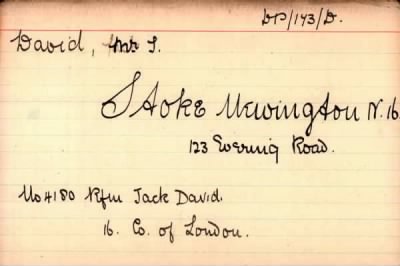 DP/143/D.
David, Mr J.
Stoke Newington N.16
123 Evering Road.
No 4180 Rfm Jack David.
16. Co. of London.